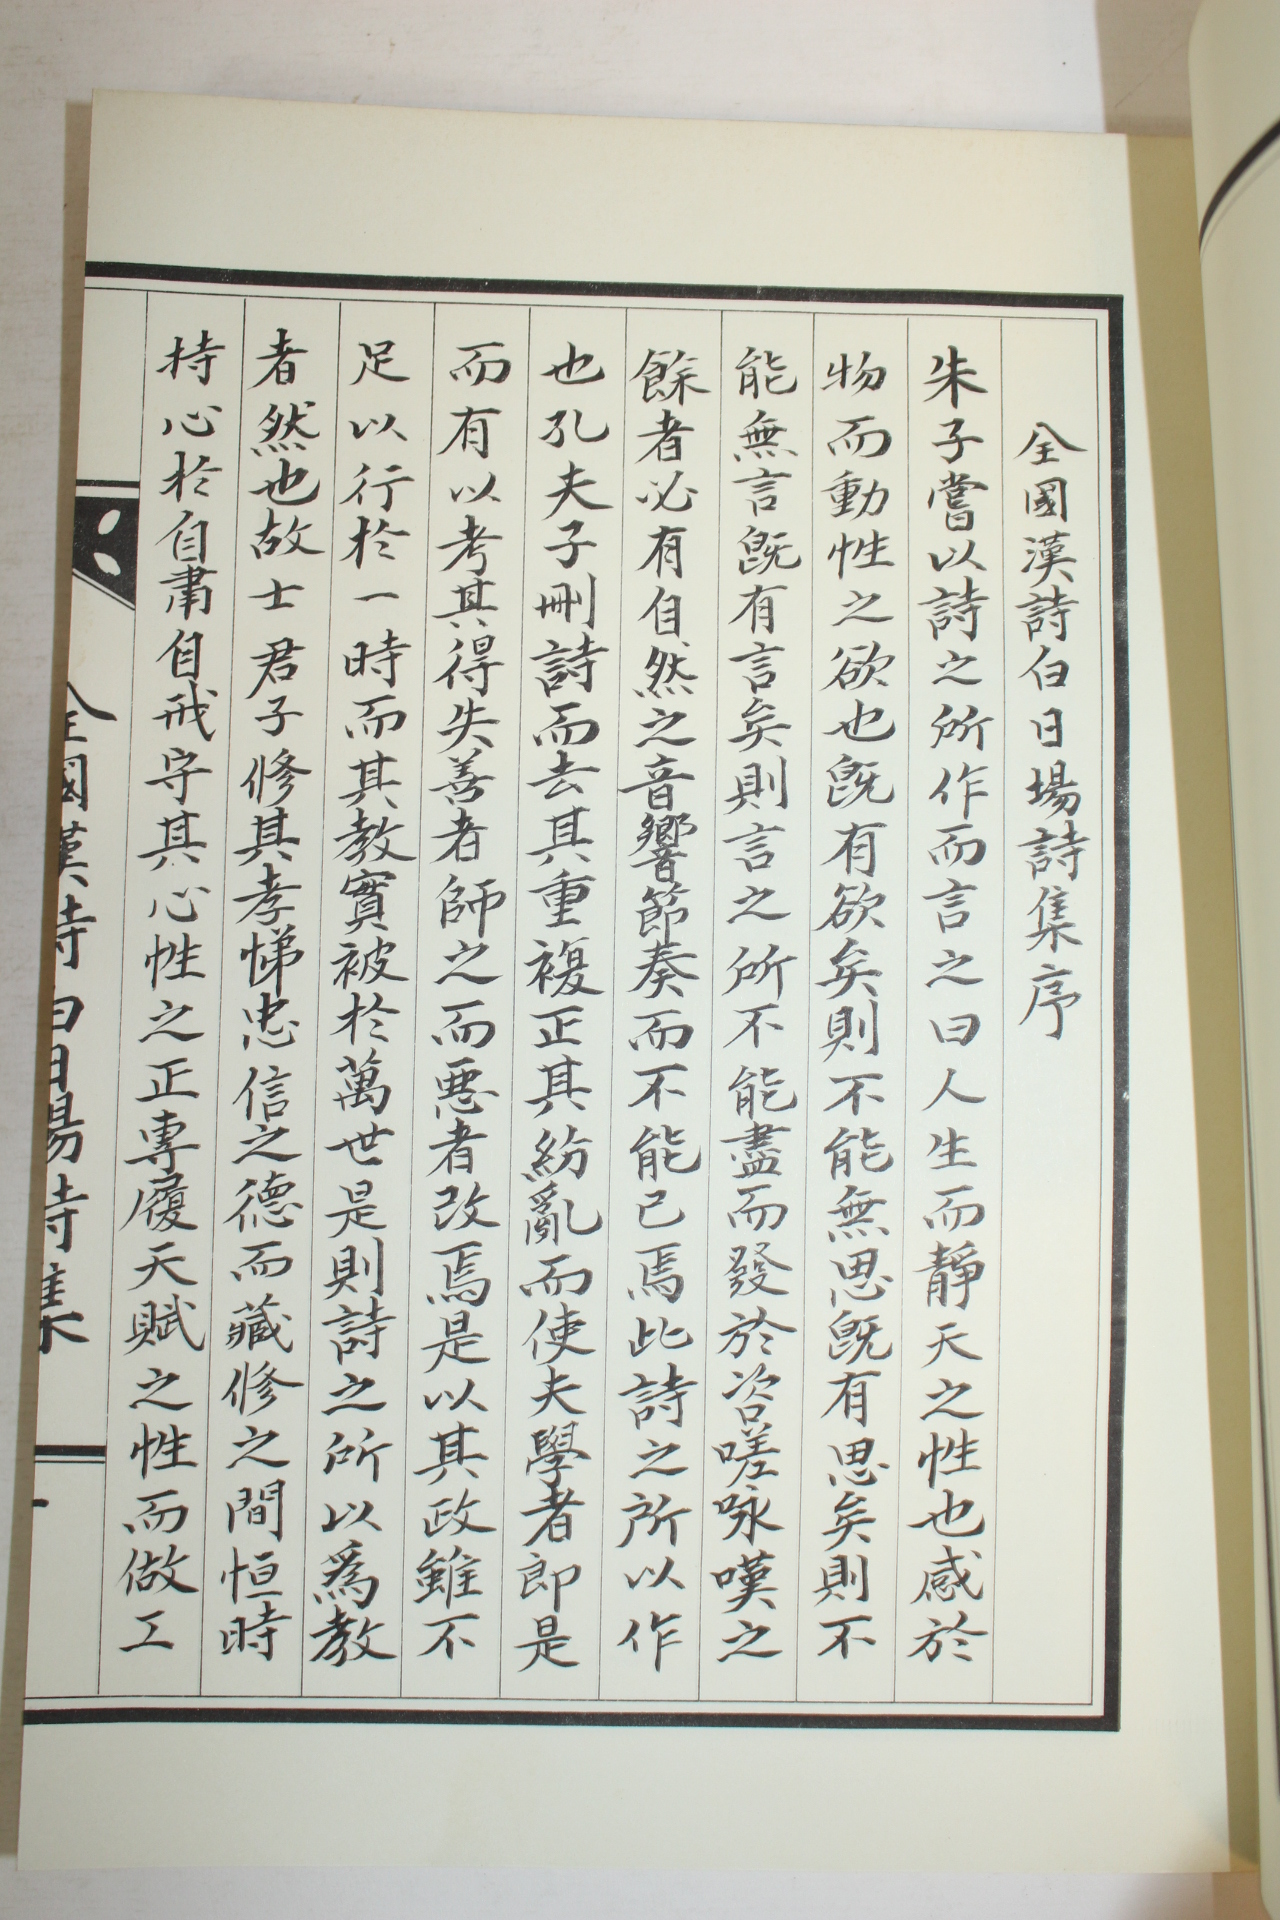 全國漢詩白日場詩集序
朱子嘗以詩之所作而言之曰人生而靜天之性也感於
物而動性之欲也旣有欲矣則不能無思旣有思矣則不
能無言旣有言矣則言之所不能盡而發於咨嗟咏嘆之
餘者必有自然之音響節奏而不能已焉此詩之所以作
也孔夫子刪詩而去其重複正其紛亂而使夫學者卽是
而有以考其得失善者師之而惡者改焉是以其政雖不
足以行於一時而其教實被於萬世是則詩之所以爲教
者然也故士君子修其孝悌忠信之德而藏修之間恒時
持心於自肅自戒守其心性之正專履天賦之性而做工
全國漢詩白日場詩集